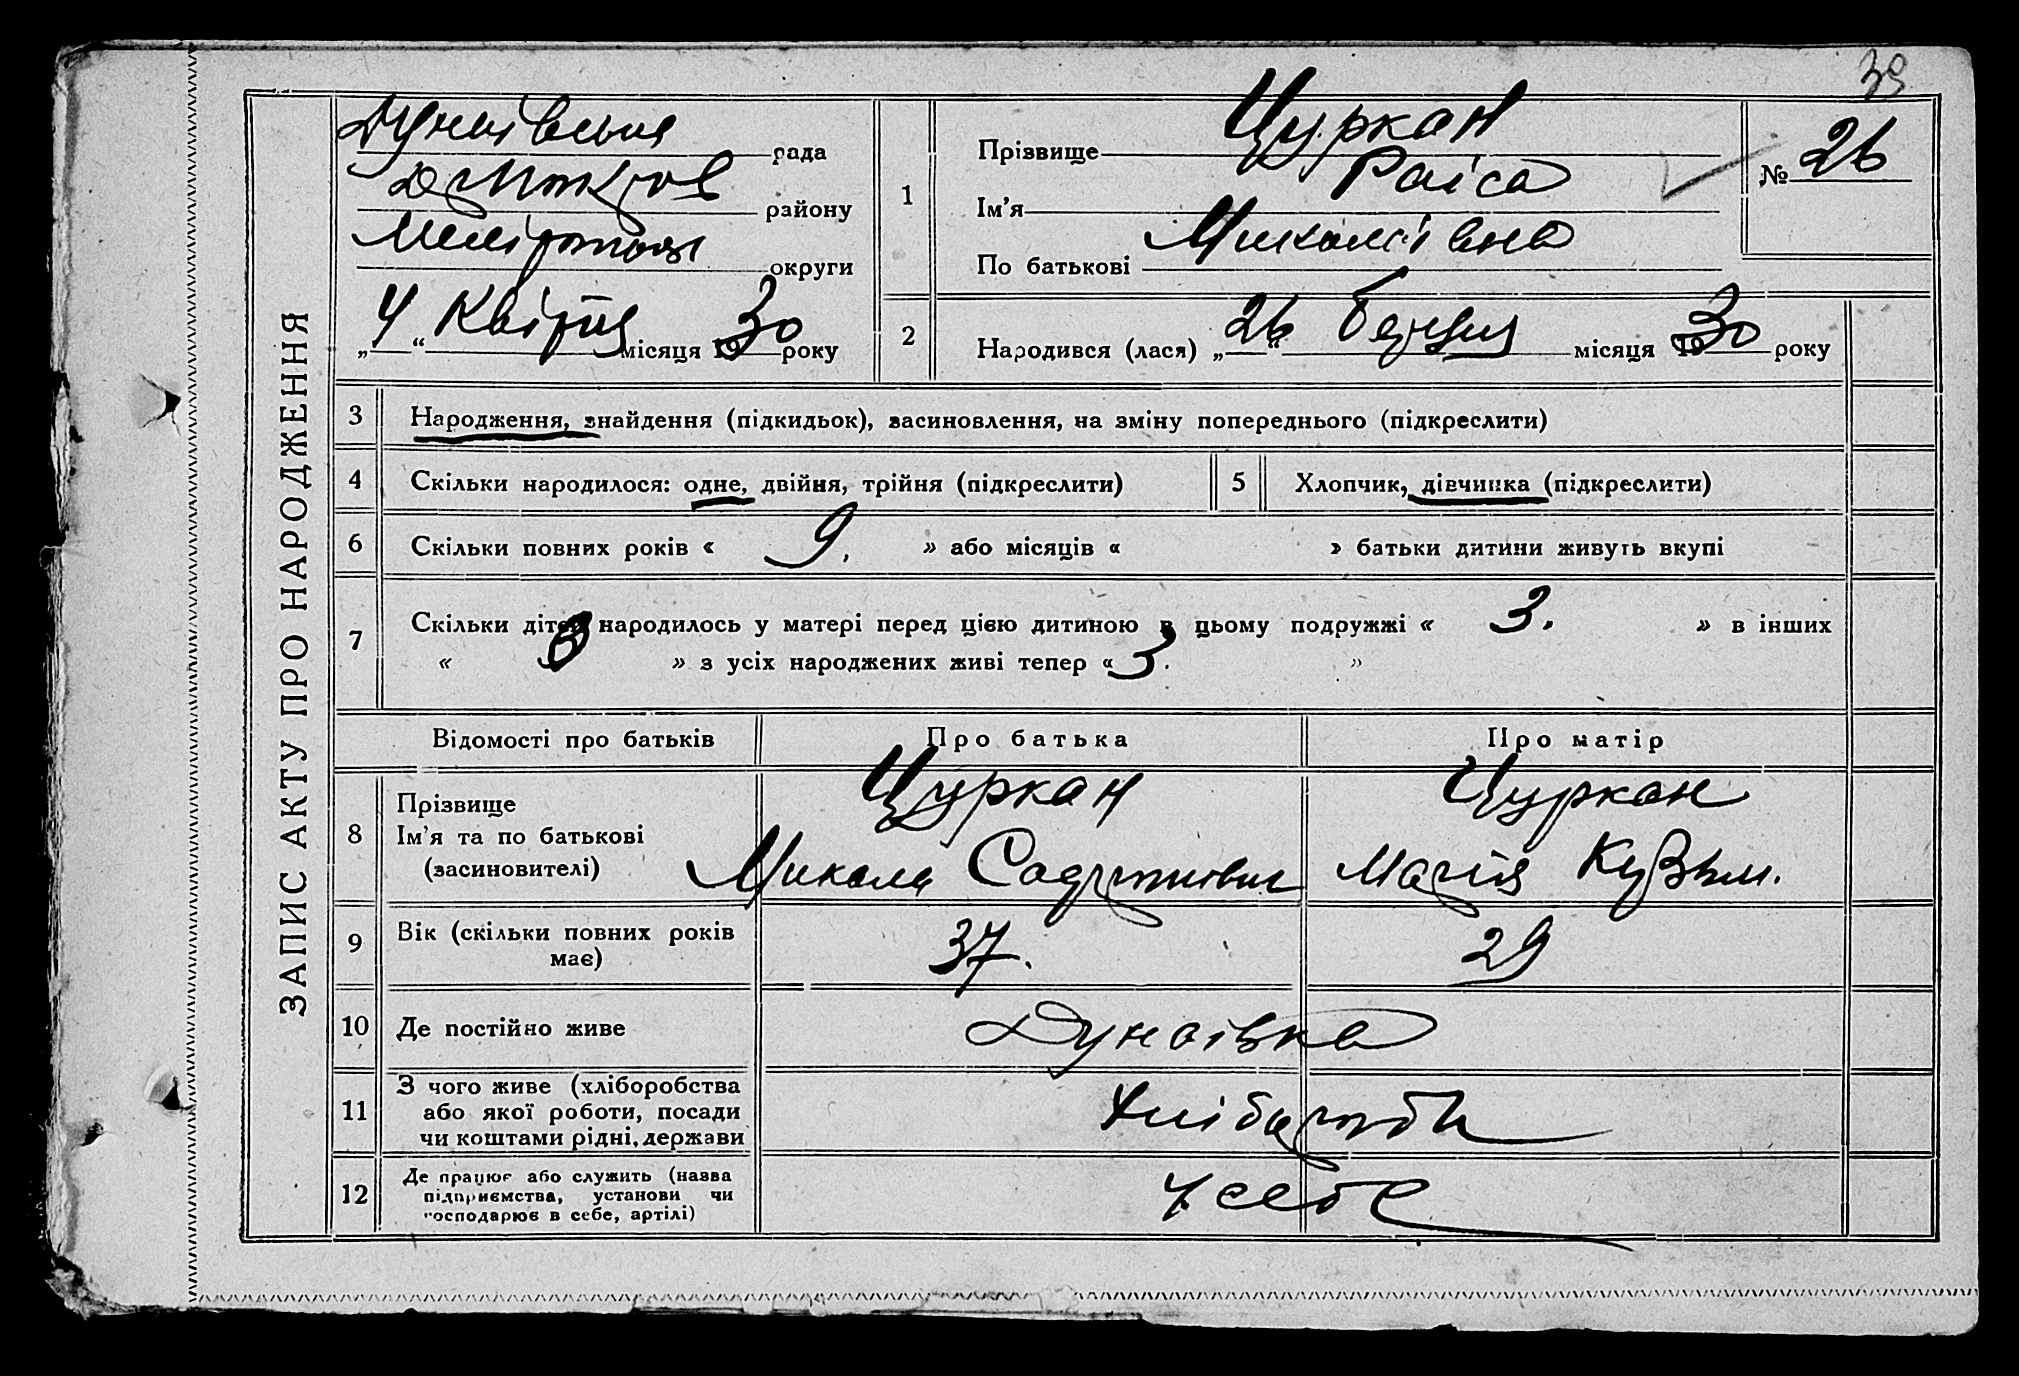 39
ЗАПИС АКТУ ПРО НАРОДЖЕННЯ
Дунаївська рада
району
округи
„4“ Квітня місяця 1930 року
1
Прізвище Цуркан
Ім'я Раіса
По батькові Миколаівна
№ 26
2
Народився (лася) „26“ березня місяця 1930 року
3 Народження, знайдення (підкидьок), засиновлення, на зміну попереднього (підкреслити)
4 Скільки народилося: одне, двійня, трійня (підкреслити)
5 Хлопчик, дівчинка (підкреслити)
6 Скільки повних років « 9. » або місяців « » батьки дитини живуть вкупі
7 Скільки дітей народилось у матері перед цією дитиною в цьому подружжі « 3. » в інших
« » з усіх народжених живі тепер « 3. »
Відомості про батьків Про батька Про матір
8 Прізвище
Ім'я та по батькові
(засиновителі)
Цуркан
Микола
Цуркан
Марія Кузьм.
9 Вік (скільки повних років
має)
37. 29
10 Де постійно живе Дунаівка
11 З чого живе (хліборобства
або якої роботи, посади
чи коштами рідні, держави
12 Де працює або служить (назва
підприємства, установи чи
господарює в себе, артілі)
У себе